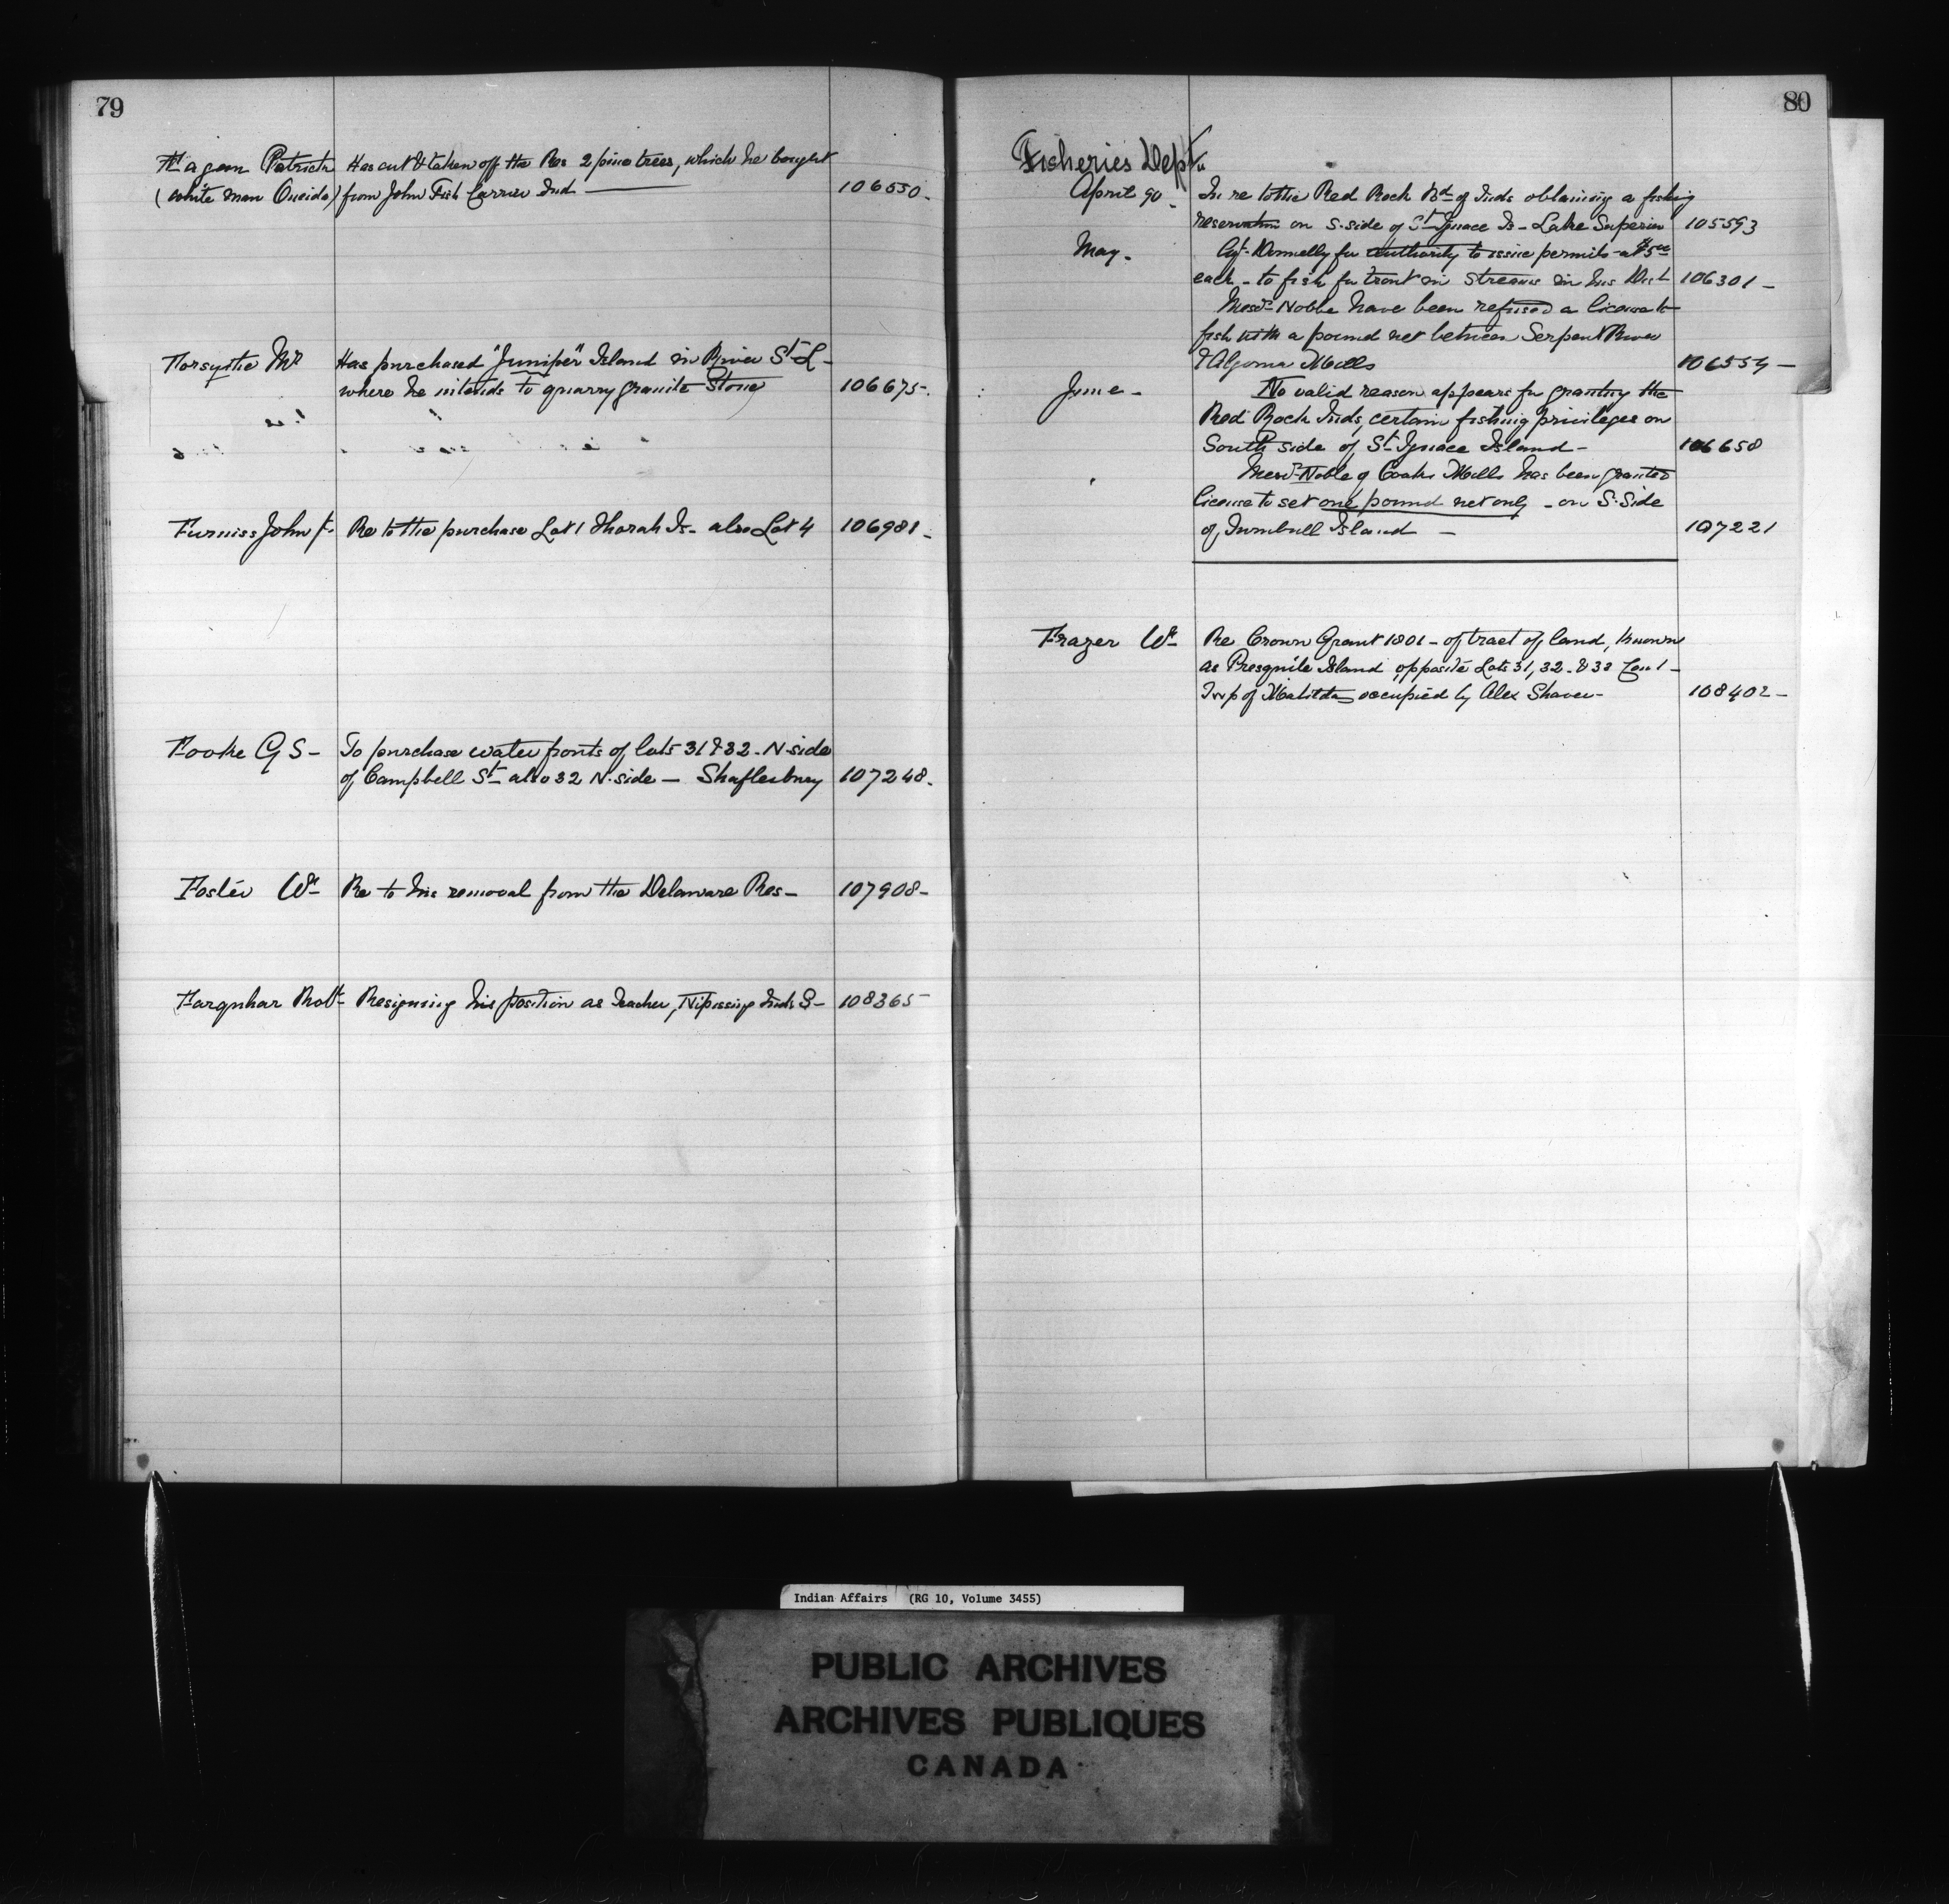 79
Fagan Patrick Has cut & taken off the Res 2 pine trees, which he bought
(white man Oneida) from John Fish Carrier Ind 106550.
Forsythe Mr Has purchased "Juniper" Island in River St L-
where he intends to quarry granite Stone 106675.
Furniss John F. Re to the purchase Lot 1 Thorah Is- also Lot 4 106981.
Fooke G S- To purchase water fronts of lots 31 & 32 - N-side
of Campbell St also 32 N-side - Shaftesbury 107248.
Foster Wm Re to his removal from the Delaware Res- 107908-
Farquhar Robt- Resigning his position as Teacher, Nipissing Inds S- 108365-
80
Fisheries Dept
April 90 In re to the Red Rock Bd of Inds obtaining a fishing
reservation on S-side of St Ignace Is- Lake Superior 105593
May. Agt Donnelly for authority to issue permits at $5.00
each - to fish for trout in streams in his Dist 106301-
Messrs Noble have been refused a license to
fish with a pound net between Serpent River
& Algoma Mills 106554-
June- No valid reason appears for granting the
Red Rock Inds, certain fishing privileges on
South side of St Ignace Island- 106658
Messrs Noble of Cooks Mills has been granted
license to set one pound net only - on S. Side
of Turnbull Island - 107221
Frazer Wm Re Crown Grant 1801- of tract of land, known
as Presquile Island, opposite Lots 31, 32 & 33 Con 1-
Twp of Matilda occupied by Alex Shaver- 108402-
Indian Affairs (RG 10, Volume 3455)
PUBLIC ARCHIVES
ARCHIVES PUBLIQUES
CANADA